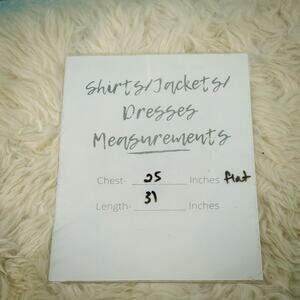 Shirts/Jackets/
Dresses
Measurements
Chest- 25 Inches flat
Length- 31 Inches